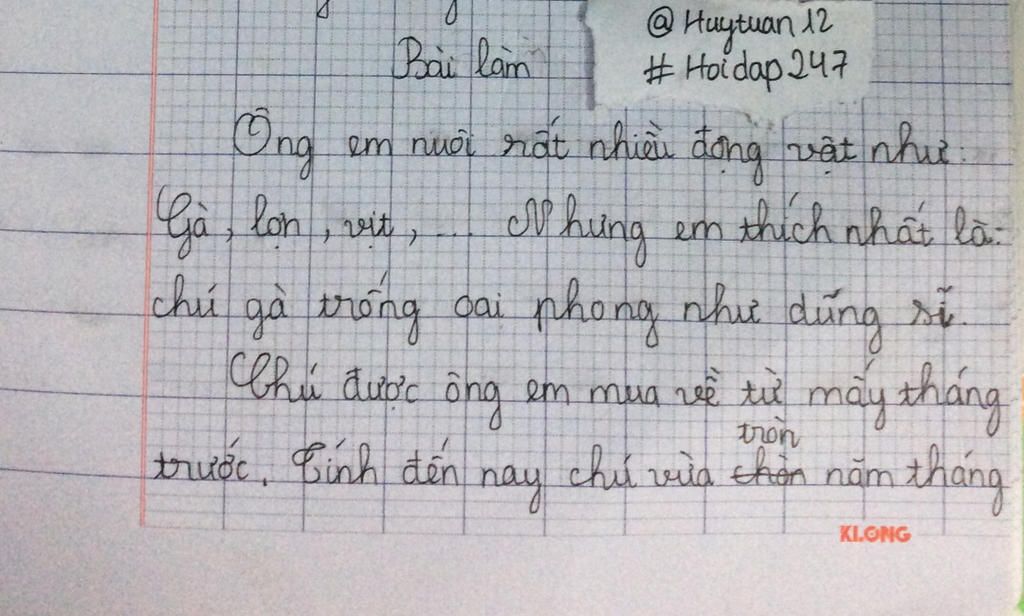 Bài làm
@Huytuan12
#Hoidap247
Ông em nuôi rất nhiều động vật như:
Gà, lợn, vịt, ... Nhưng em thích nhất là:
chú gà trống oai phong như dũng sĩ.
Chú được ông em mua về từ mấy tháng
tròn
trước. Tính đến nay chú vừa thòn năm tháng
KLONG